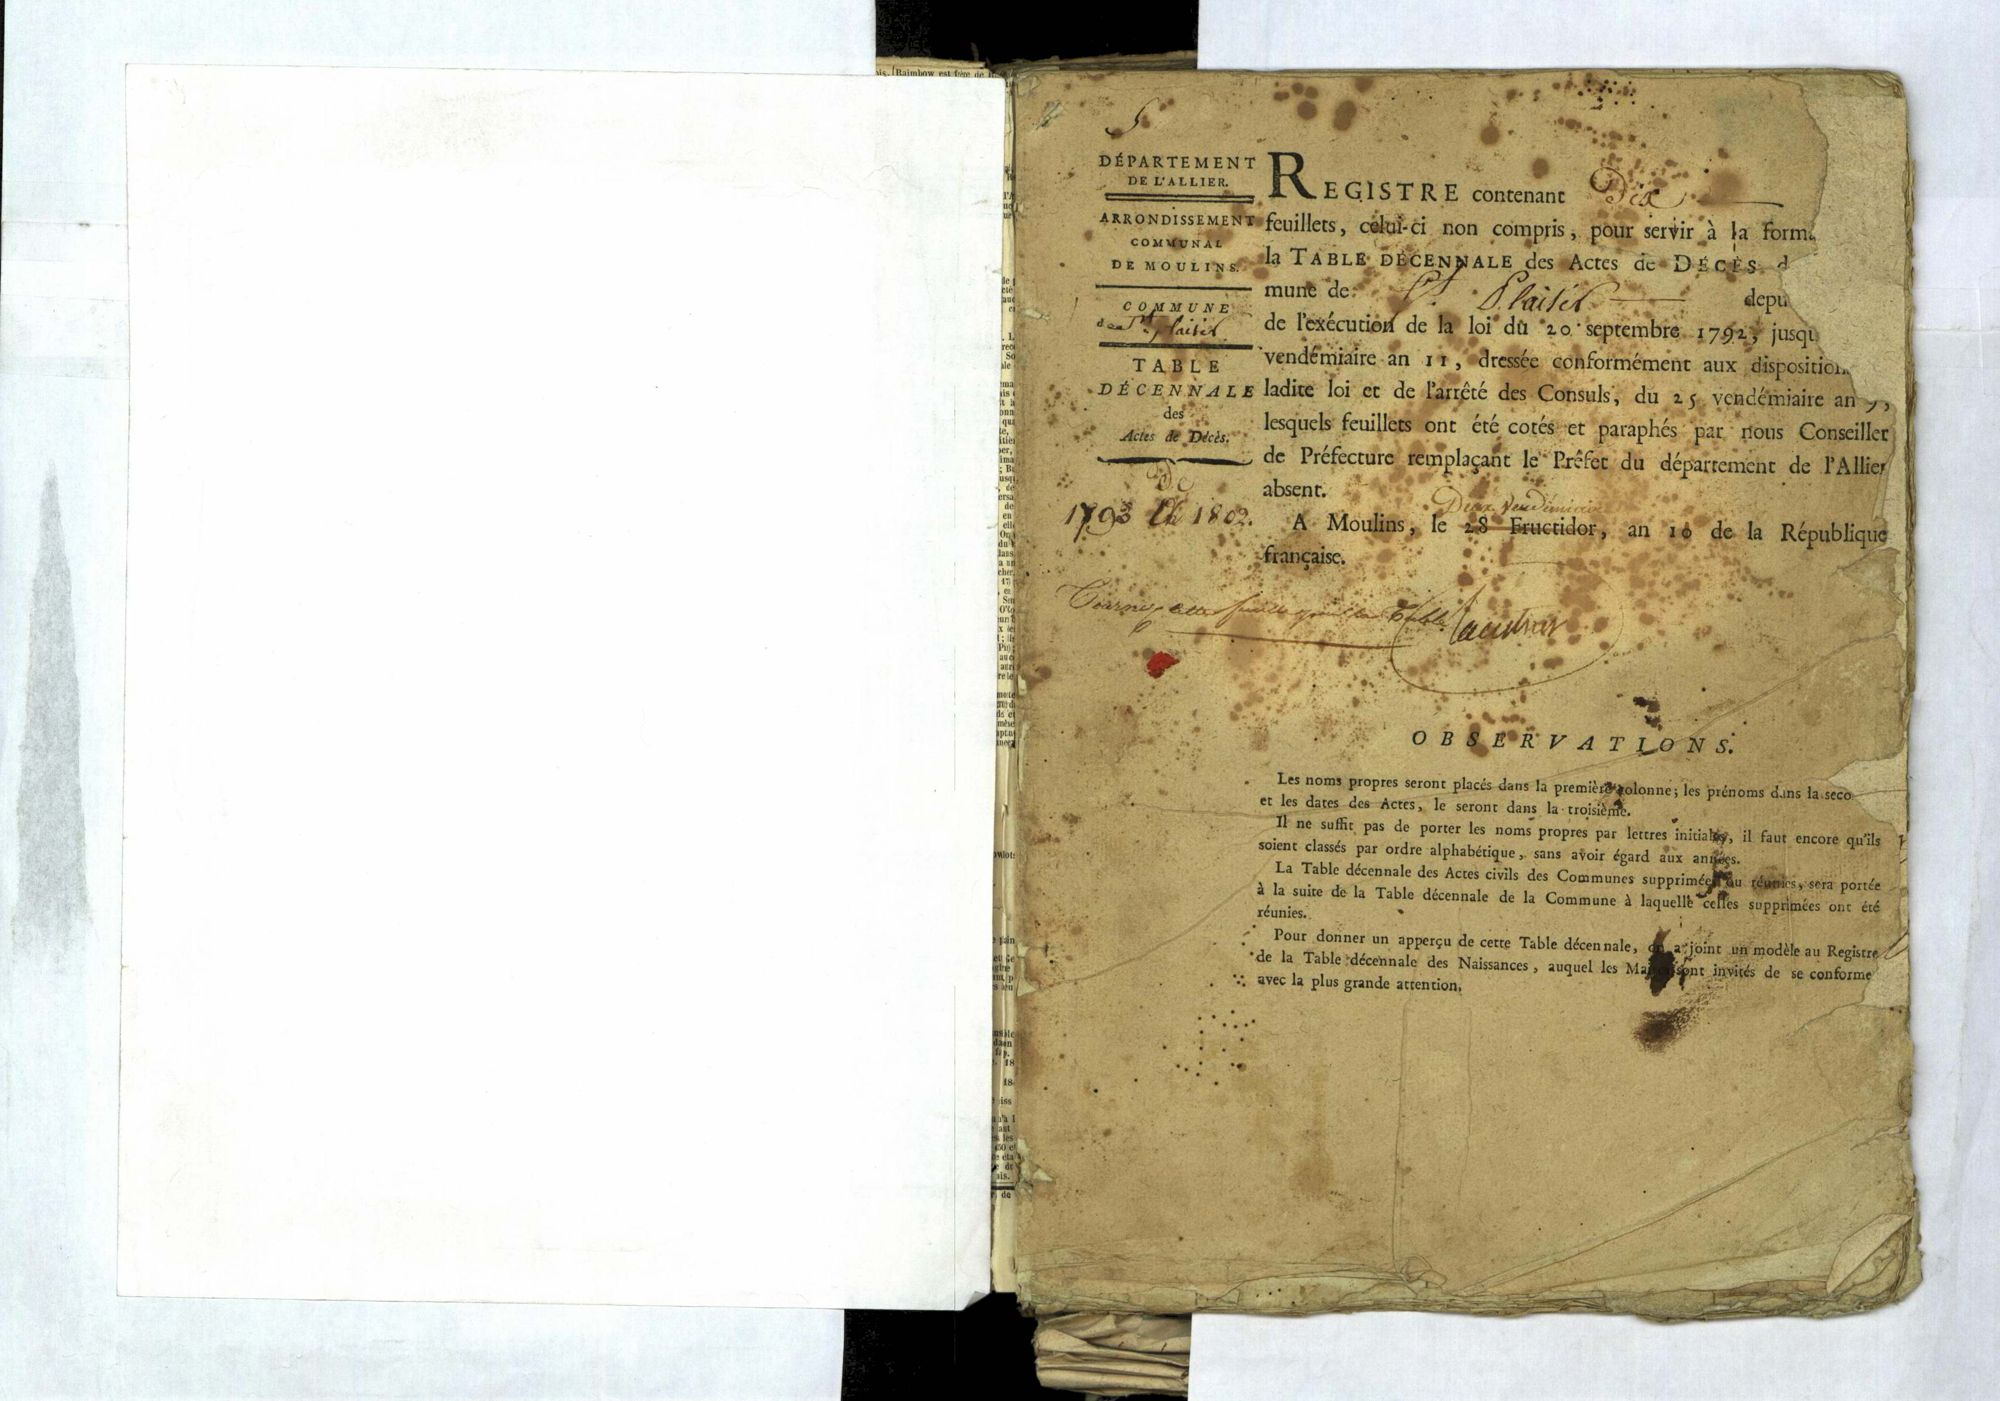 DÉPARTEMENT
DE L'ALLIER.
ARRONDISSEMENT
COMMUNAL
DE MOULINS.
COMMUNE
de St plaisir
TABLE
DÉCENNALE
des
Actes de Décès.
De
1793 à 1802.
REGISTRE contenant Dix
feuillets, celui-ci non compris, pour servir à la forma
la TABLE DÉCENNALE des Actes de DÉCÈS d
mune de St Plaisir depu
de l'exécution de la loi du 20 septembre 1792, jusqu
vendémiaire an 11, dressée conformément aux disposition
ladite loi et de l'arrêté des Consuls, du 25 vendémiaire an 9,
lesquels feuillets ont été cotés et paraphés par nous Conseiller
de Préfecture remplaçant le Préfet du département de l'Allier
absent.
Deux vendémiaire
A Moulins, le 28 Fructidor, an 10 de la République
française.
Tournez cette feuille pour la Table
OBSERVATIONS.
Les noms propres seront placés dans la première colonne; les prénoms dans la seco
et les dates des Actes, le seront dans la troisième.
Il ne suffit pas de porter les noms propres par lettres initiales, il faut encore qu'ils
soient classés par ordre alphabétique, sans avoir égard aux années.
La Table décennale des Actes civils des Communes supprimées ou réunies, sera portée
à la suite de la Table décennale de la Commune à laquelle celles supprimées ont été
réunies.
Pour donner un apperçu de cette Table décennale, on a joint un modèle au Registre
de la Table décennale des Naissances, auquel les Maires sont invités de se conforme
avec la plus grande attention.